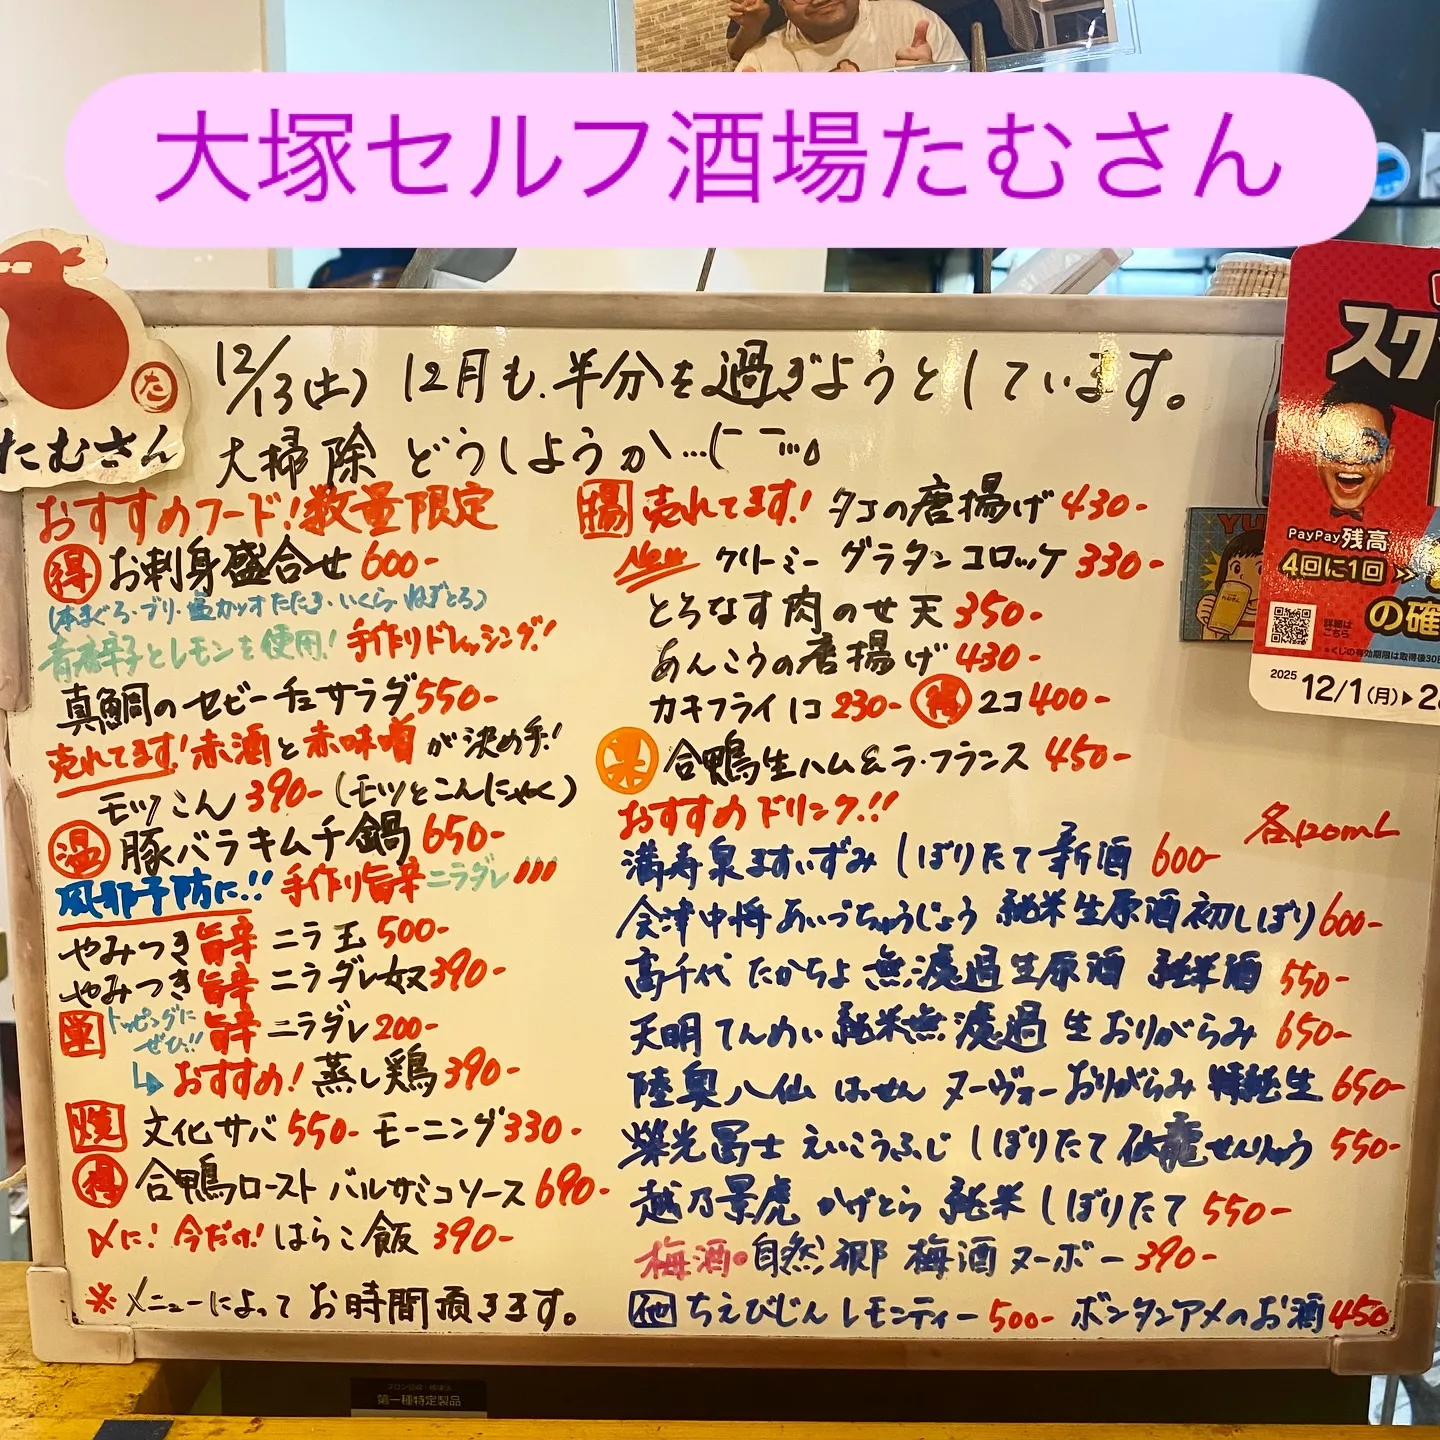 大塚セルフ酒場たむさん
た
たむさん
12/13(土) 12月も、半分を過ぎようとしています。
大掃除 どうしようか…
おすすめフード!数量限定
得 お刺身盛合せ 600-
(本まぐろ・ブリ・塩カツオたたき・いくら・ねぎとろ)
青唐辛子とレモンを使用! 手作りドレッシング!
真鯛のセビーチェサラダ 550-
売れてます!赤酒と赤味噌が決め手!
モツこん 390- (モツとこんにゃく)
温 豚バラキムチ鍋 650-
風邪予防に!! 手作り旨辛ニラダレ
やみつき旨辛 ニラ玉 500-
やみつき旨辛 ニラダレ奴 390-
単 トッピングにぜひ!! 旨辛 ニラダレ 200-
おすすめ! 蒸し鶏 390-
焼 文化サバ 550- モーニング 330-
得 合鴨ロースト バルサミコソース 690-
〆に! 今だけ! はらこ飯 390-
※メニューによってお時間頂きます。
揚 売れてます! タコの唐揚げ 430-
New クリーミー グラタンコロッケ 330-
とろなす肉のせ天 350-
あんこうの唐揚げ 430-
カキフライ 1コ 230- 得 2コ 400-
合鴨生ハム&ラ・フランス 450-
おすすめドリンク!!
各120mL
満寿泉ますいずみ しぼりたて新酒 600-
会津中将 あいづちゅうじょう 純米生原酒初しぼり 600-
高千代 たかちよ 無濾過生原酒 純米酒 550-
天明 てんめい 純米無濾過 生 おりがらみ 650-
陸奥八仙 はっせん ヌーヴォー おりがらみ 特純生 650-
榮光冨士 えいこうふじ しぼりたて 仙龍せんりゅう 550-
越乃景虎 かげとら 純米 しぼりたて 550-
梅酒・自然郷 梅酒ヌーボー 390-
他 ちえびじん レモンティー 500- ボンタンアメのお酒 450
スク
PayPay残高
4回に1回
の確
詳細は
こちら
2025 12/1(月)▶2
第一種特定製品